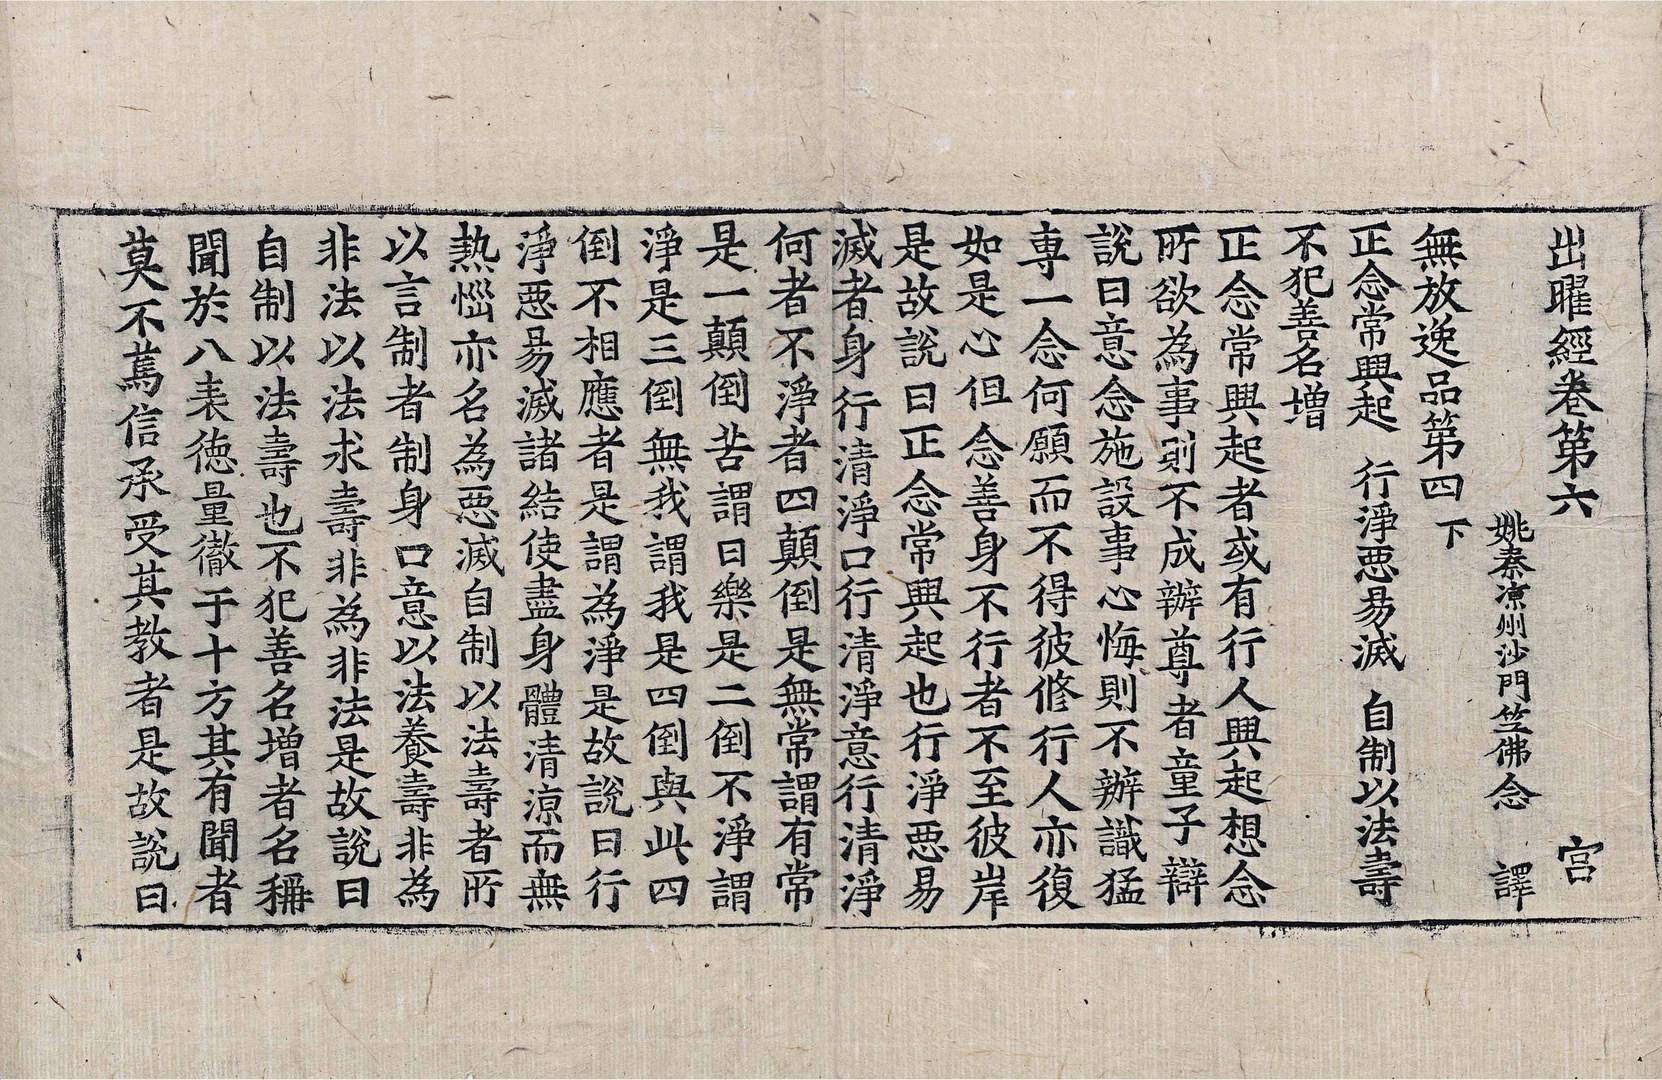 出曜經卷第六 宫
姚秦凉州沙門笁佛念 譯
無放逸品第四下
正念常興起 行淨惡易滅 自制以法壽
不犯善名增
正念常興起者或有行人興起想念
所欲為事則不成辦尊者童子辯
說曰意念施設事心悔則不辦識猛
専一念何願而不得彼修行人亦復
如是心但念善身不行者不至彼岸
是故說曰正念常興起也行淨惡易
滅者身行清淨口行清淨意行清淨
何者不淨者四顛倒是無常謂有常
是一顛倒苦謂曰樂是二倒不淨謂
淨是三倒無我謂我是四倒與此四
倒不相應者是謂為淨是故說曰行
淨惡易滅諸結使盡身體清凉而無
熱惱亦名為惡滅自制以法壽者所
以言制者制身口意以法養壽非為
非法以法求壽非為非法是故說曰
自制以法壽也不犯善名增者名稱
聞於八表徳量徹于十方其有聞者
莫不篤信承受其教者是故說曰